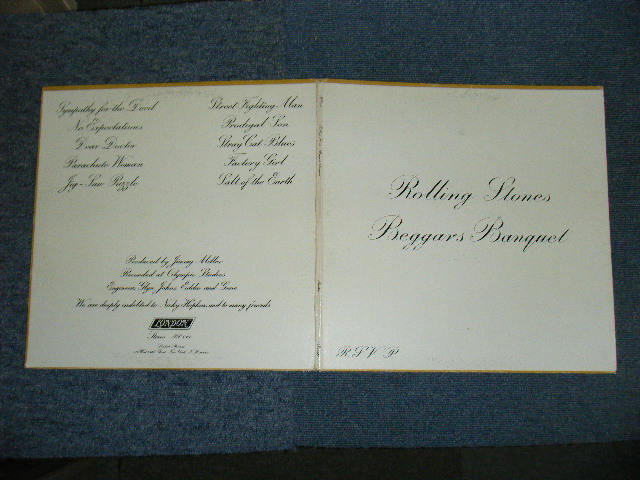 Sympathy for the Devil
No Expectations
Dear Doctor
Parachute Woman
Jig-Saw Puzzle
Street Fighting Man
Prodigal Son
Stray Cat Blues
Factory Girl
Salt of the Earth
Produced by Jimmy Miller
Recorded at Olympic Studios
Engineers, Glyn Johns Eddie and Gene
We are deeply indebted to Nicky Hopkins and to many friends
LONDON
Stereo
Rolling Stones
Beggars Banquet
R.S.V.P.